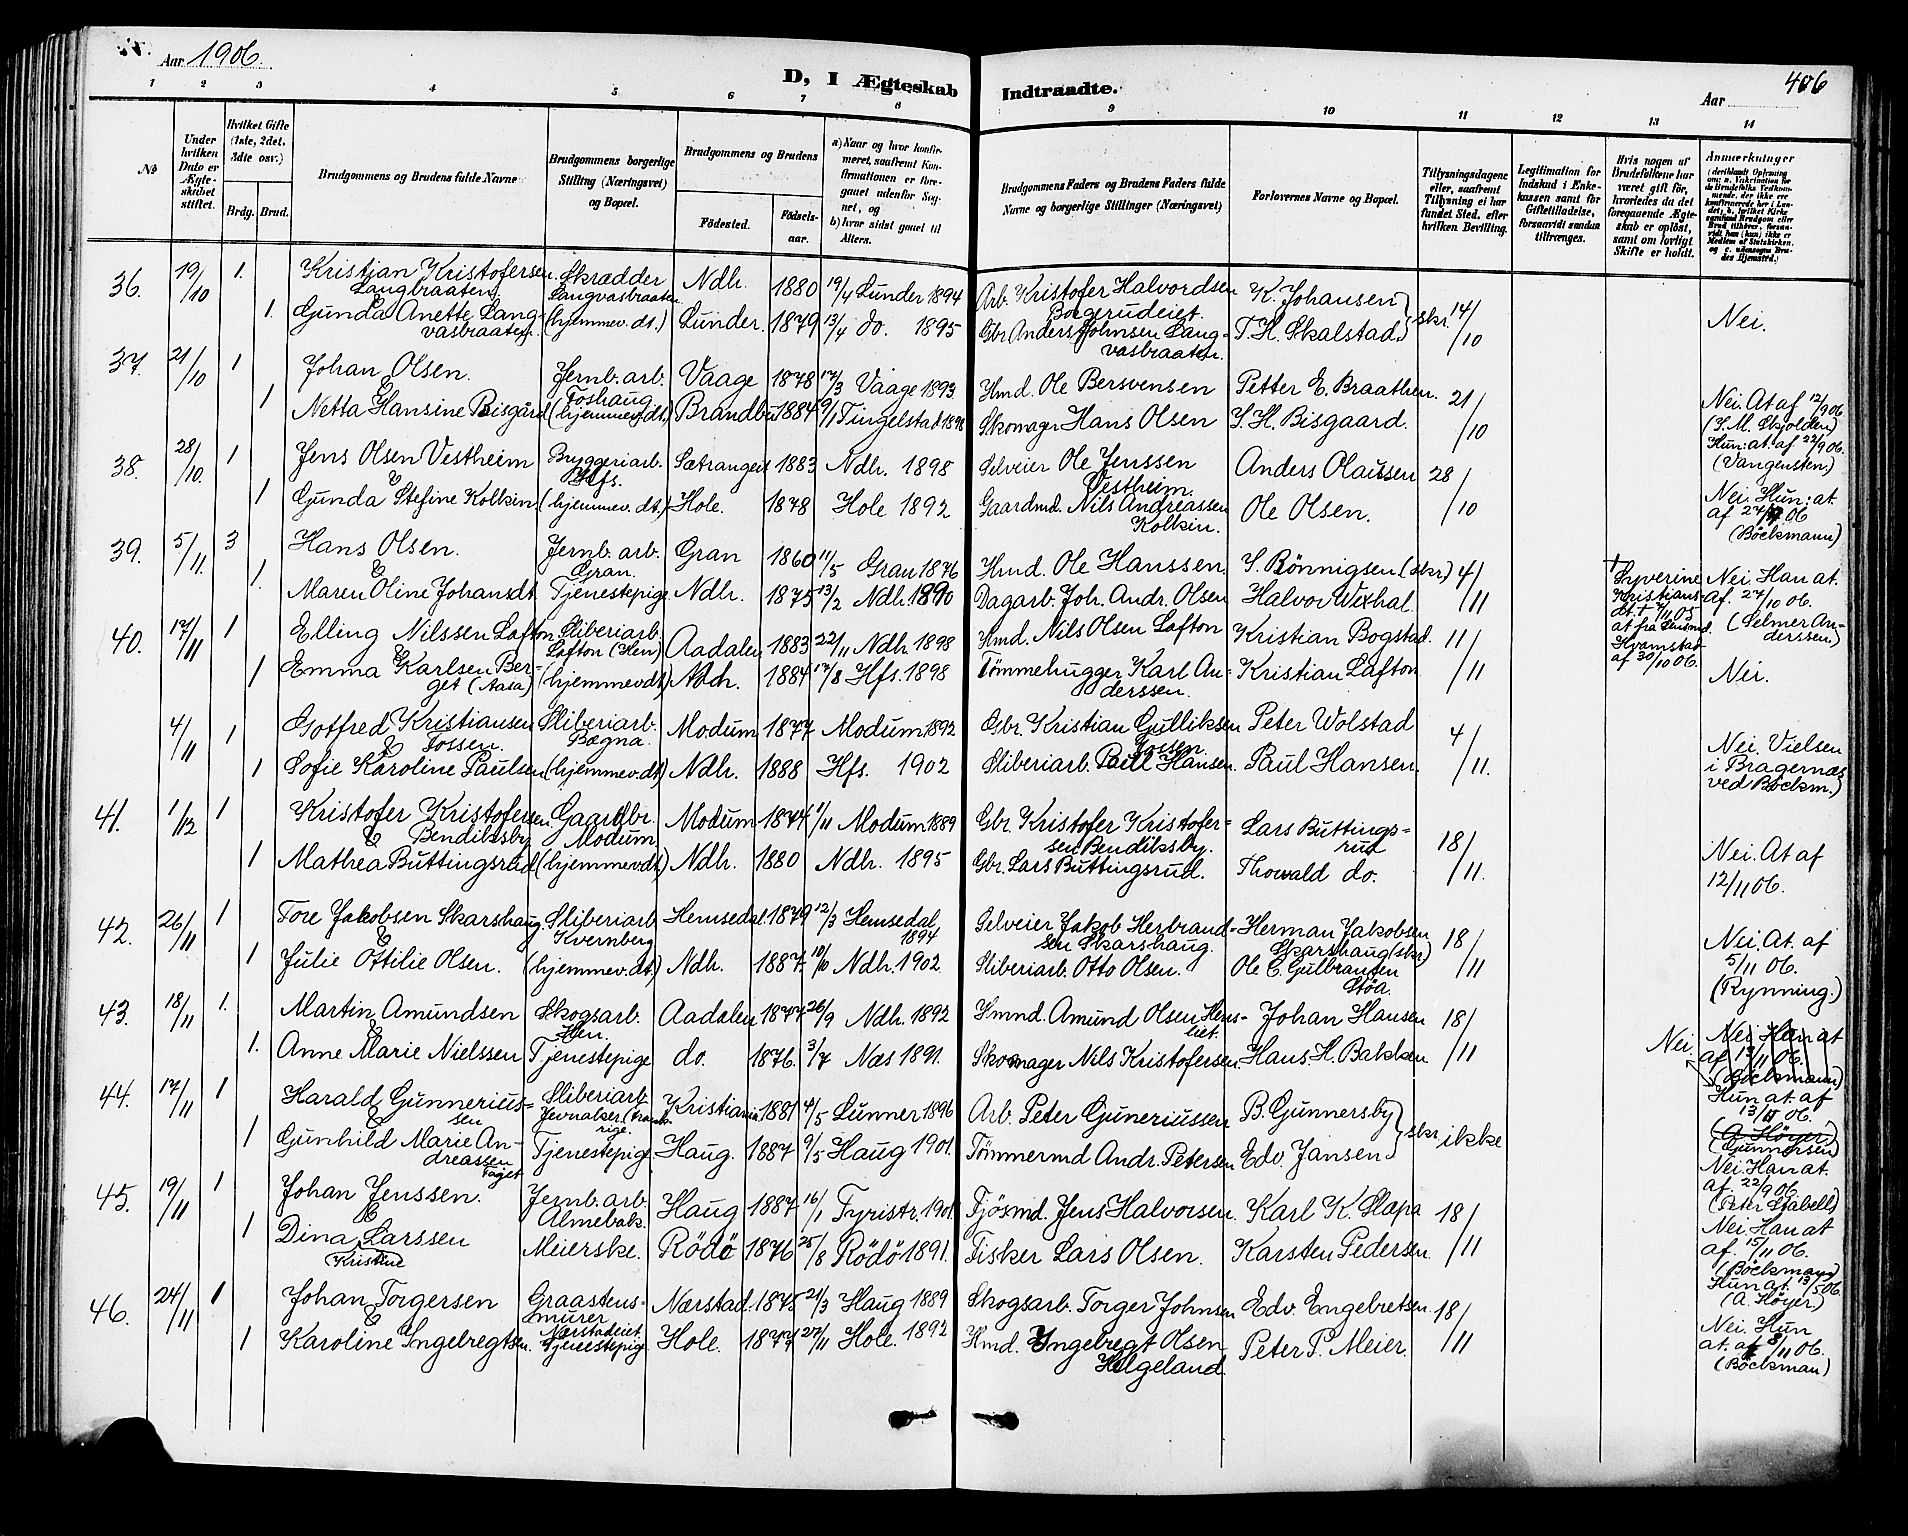 Aar 1906.
406
D, I Ægteskab Indtraadte.
Aar
1 2 3 4 5 6 7 8 9 10 11 12 13 14
№
Under hvilken Dato er Ægteskabet stiftet.
Hvilket Gifte (1ste, 2det, 3die osv.)
Brdg. Brud.
Brudgommens og Brudens fulde Navne
Brudgommens borgerlige Stilling (Næringsvei) og Bopæl.
Brudgommens og Brudens
Fødested. Fødselsaar.
a) Naar og hvor konfirmeret, saafremt Konfirmationen er foregaaet udenfor Sognet, og
b) hvor sidst gaaet til Alters.
Brudgommens Faders og Brudens Faders fulde Navne og borgerlige Stillinger (Næringsvei)
Forlovernes Navne og Bopæl.
Tillysningsdagene eller, saafremt Tillysning ei har fundet Sted, efter hvilken Bevilling.
Legitimation for Indskud i Enkekassen samt for Giftetilladelse, forsaavidt saadan tiltrænges.
Hvis nogen af Brudefolkene har været gift før, hvorledes da det foregaaende Ægteskab er opløst, samt om lovligt Skifte er holdt.
Anmærkninger
36. 19/10 1. Kristian Kristofersen Langbraaten Skrædder Langvasbraaten Ndh. 1880 19/4 Lunder 1894 Arb. Kristofer Halvordsen Bageruddeiet K. Johansen skr. 14/10
& 1. Gunda Anette Langvasbraaten (hjemmev. dt.) Lunder. 1879 13/4 do. 1895 Gbr. Anders Johnsen Langvasbraaten. T. H. Skalstad Nei.
37. 21/10 1 Johan Olsen. Jernb. arb. Toshaug Vaage 1878 17/3 Vaage 1893 Hmd. Ole Bersvensen Petter E. Braathen. 21/10
& 1 Netta Hansine Bisgård (hjemmev. dt.) Brandbu 1884 9/1 Tingelstad 1898 Skomager Hans Olsen S. H. Bisgaard. Nei. At af 12/9 06. (S. M. Skjolden) Hun: at. af 22/9 06. (Vangensten)
38. 28/10 1 Jens Olsen Vestheim Bryggeriarb. Hfs. Sætranget 1883 Ndh. 1898 Selveier Ole Jenssen Vestheim. Anders Olaussen 28/10
& 1 Gunda Stefine Kolkin (hjemmev. dt.) Hole. 1878 Hole 1892 Gaardmd. Nils Andreassen Kolkin. Ole Olsen. Nei. Hun: at af 27/ 06 (Böckmann)
39. 5/11. 3 Hans Olsen. Jernb. arb. Gran. Gran 1860 11/5 Gran 1876 Hmd. Ole Hanssen. S. Rönnigsen (skr) 4/11
& 1. Maren Oline Johansdt. Tjenestepige Ndh. 1875 13/2 Ndh. 1890 Dagarb. Joh. Andr. Olsen Halvor Wexhal. † Syverine Kristiansdt. † 4/11 05 at fra Lensmd. Hvamstad af 30/10 06. Nei. Han at. af. 27/10 06. (Selmer Anderssen)
40. 17/11 1 Elling Nilssen Lafton Sliberiarb. Lafton (Hen) Aadalen 1883 22/11 Ndh. 1898 Hmd. Nils Olsen Lafton Kristian Bogstad. 11/11
& 1 Emma Karlsen Berget (Aasa) (hjemmev. dt.) Ndh. 1884 17/8 Hfs. 1898 Tømmehugger Karl Anderssen. Kristian Lafton Nei.
4/11 1 Gotfred Kristiansen Fossen. Sliberiarb. Bægna. Modum 1877 Modum 1892 Gbr. Kristian Gulliksen Fossen. Peter Wolstad 4/11.
& 1 Sofie Karoline Paulsen (hjemmev. dt.) Ndh. 1888 Hfs. 1902 Sliberiarb. Paul Hansen. Paul Hansen. Nei. Vielsen i Bragernæs ved Böckm.)
41. 1/12 1 Kristofer Kristofersen Bendiksby Gaardbr. Modum Modum 1874 1/11 Modum 1889 Gbr. Kristofer Kristofersen Bendiksby. Lars Buttingsrud 18/11.
& 1 Mathea Buttingsrud (hjemmev. dt.) Ndh. 1880 Ndh. 1895 Gbr. Lars Buttingsrud. Thorvald do. Nei. At af 12/11 06.
42. 26/11 1 Tore Jakobsen Skarshaug. Sliberiarb. Kvernberg Hemsedal. 1879 12/3 Hemsedal 1894 Selveier Jakob Herbrandsen Skarshaug. Herman Jakobsen Skarshaug (skr) 18/11
& 1 Julie Ottilie Olsen. (hjemmev. dt.) Ndh. 1887. 10/10 Ndh. 1902. Sliberiarb. Otto Olsen. Ole C. Gulbransen Støa. Nei. At. af 5/11 06. (Rynning.)
43. 18/11 1. Martin Amundsen Skogsarb. Hen. Aadalen 1877 26/9 Ndh. 1892 Hmnd. Amund Olsen Henseiet. Johan Hansen 18/11
& 1. Anne Marie Nielssen Tjenestepige do. 1876. 3/7 Næs 1891. Skomager Nils Kristofersen. Hans H. Bakken Nei. Nei Han at af 13/11 06. (Böckmann)
44. 17/11 1 Harald Gunneriussen Sliberiarb. Jevnaker Kristiania 1881 4/5 Lunner 1896 Arb. Peter Guneriussen B. Gunnersby skr. ikke
& 1 Gunhild Marie Andreassen Faget Tjenestepige. Haug. 1887 9/5 Haug 1901. Tömmermd Andr. Petersen Edv. Jansen Hun at. af 13/11 06. (A. Höyer) (Gunnersen)
45. 19/11 1 Johan Jenssen. Jernb. arb. Almebak. Haug 1887 16/1 Tyristr. 1901. Tjösmd. Jens Halvorsen. Karl K. Slapa 18/11
& 1 Dina Kristine Larssen Meierske. Rödö 1876 25/8 Rödö 1891. Fisker Lars Olsen. Karsten Pedersen Nei Han at. af 22/9 06. (Peter Stabell) Nei. Han at af. 15/11 06. (Böckmann) Hun at. 13/5 06. (A. Höyer)
46. 24/11 1 Johan Torgersen Graastensmurer Nærstadeiet Nærstad. 1875 21/3 Haug 1889 Skogsarb. Torger Johnsen Edv. Engebretsen. 18/11
& 1 Karoline Ingebregtsen. Tjenestepig. Hole. 1877 27/11 Hole. 1892 Hmd. Yngebregt Olsen Helgeland. Peter P. Meier. Nei. Hun at. af. 8/11 06. (Böckman)